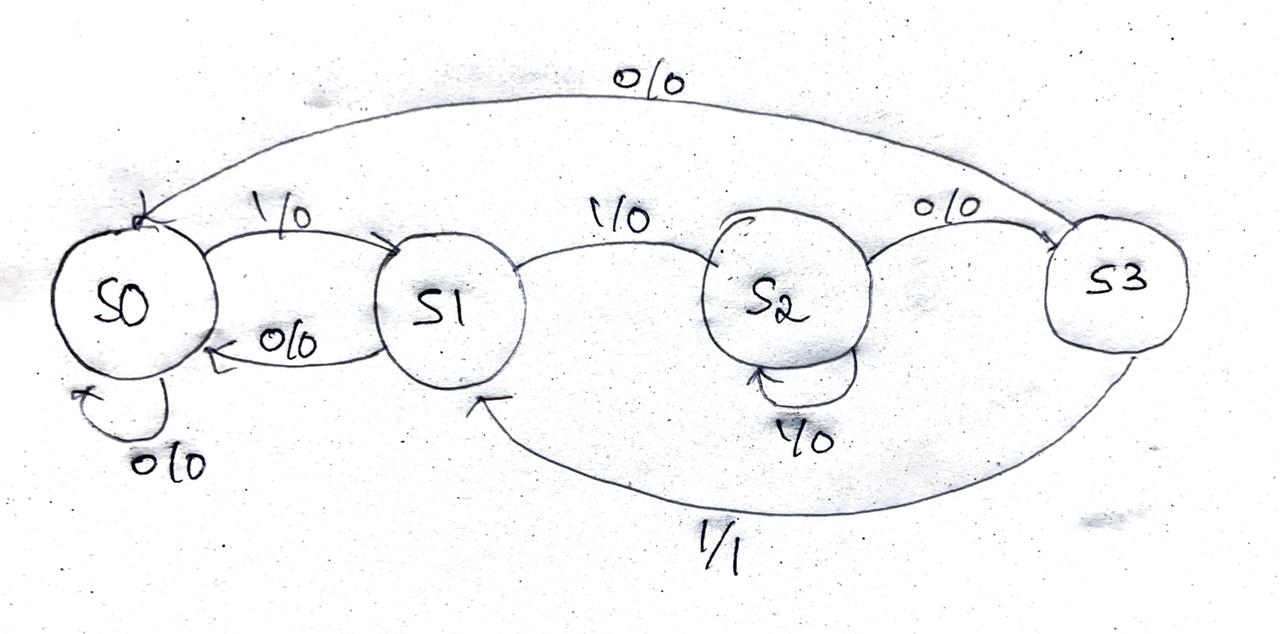 0/0
1/0
1/0
0/0
S0
S1
S2
S3
0/0
0/0
1/0
1/1